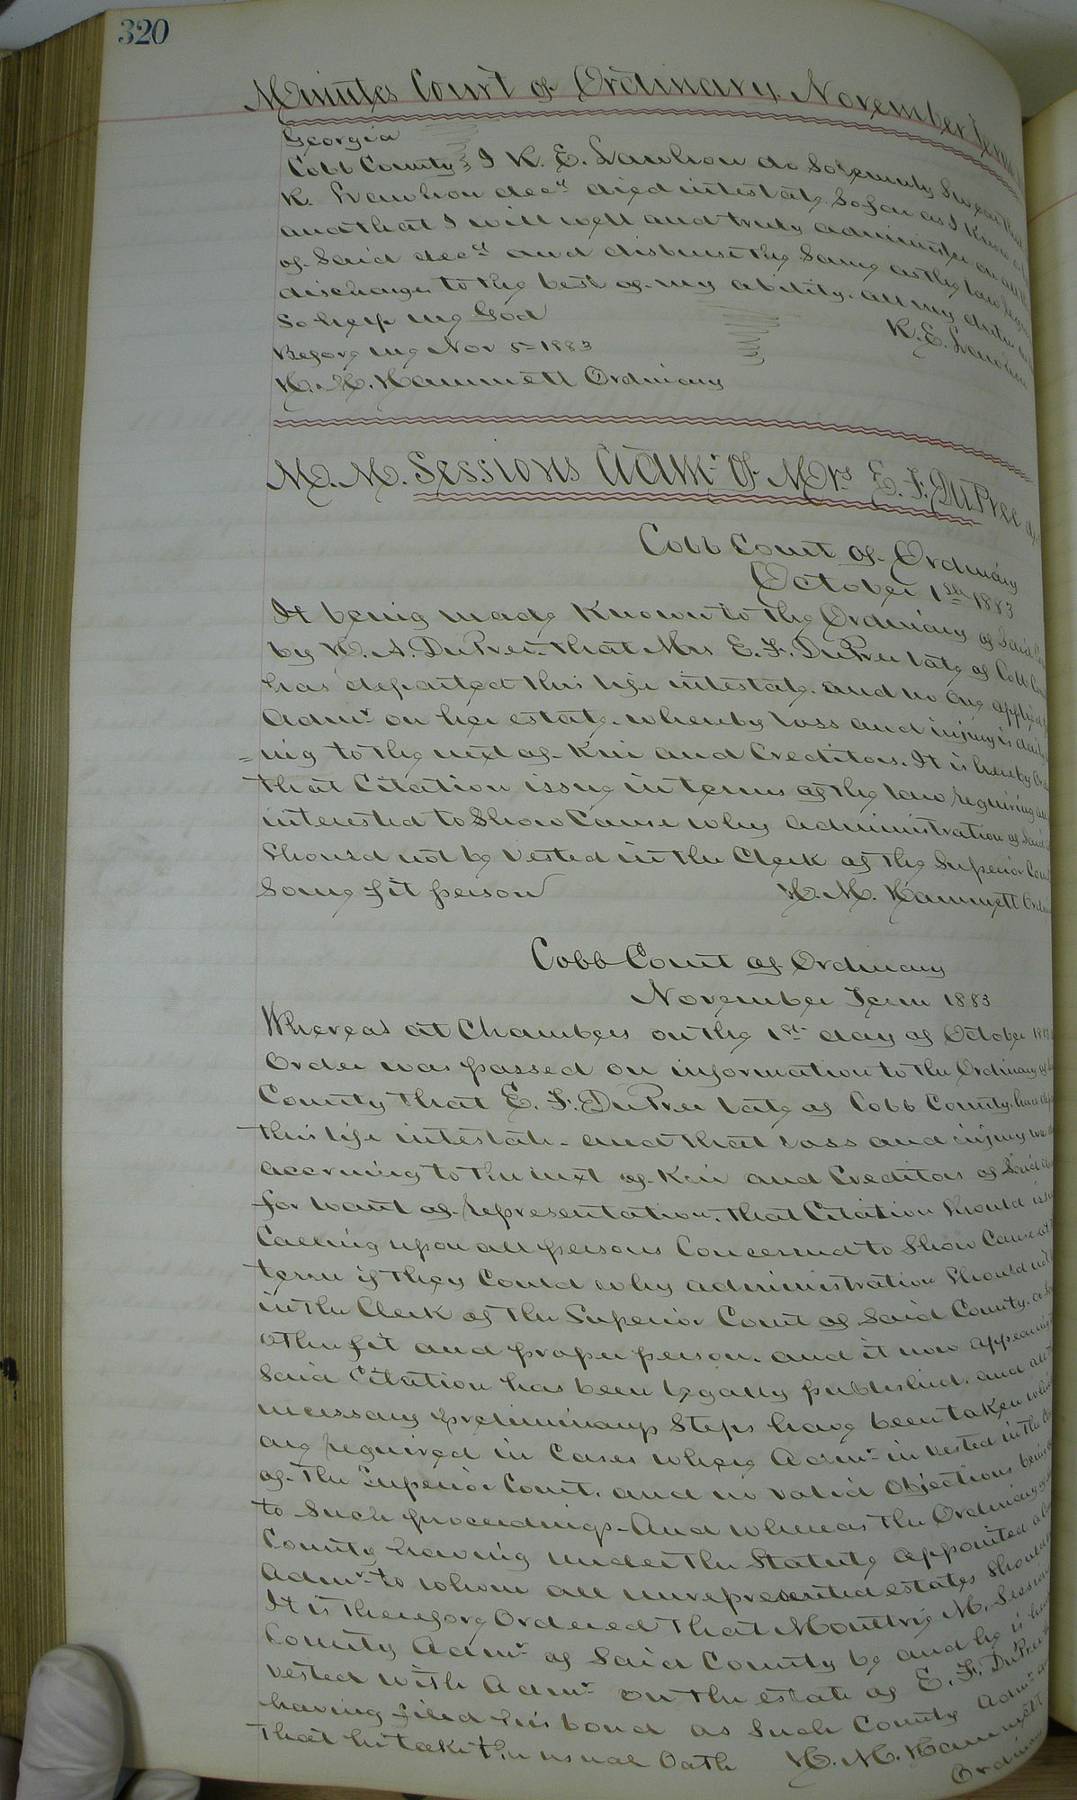 320
Minutes Court of Ordinary November Term
Georgia
Cobb County } I R. E. Lawhon do Solemnly Swear that
K. Lawhon decd died intestate So far as I Know
and that I will well and truly administer on all the
of Said decd and disburse the Same as the law requires
discharge to the best of my ability, all my duties
So help me God
R. E. Lawhon
Before me Nov 5 - 1883
H. M. Hammett Ordinary
M. M. Sessions Admr of Mrs E. F. DuPree
Cobb Court of Ordinary
October 1st 1883
It being made Known to the Ordinary of Said
by W. A. DuPree that Mrs E. F. DuPree late of Cobb
has departed this life intestate, and no one applied
Admr on her estate whereby loss and injury is
= ing to the next of Kin and Creditors. It is hereby
that Citation issue in terms of the law requiring
interested to Show Cause why administration of Said
Should not be Vested in the Clerk of the Superior
Some fit person
H. M. Hammett
Cobb Court of Ordinary
November Term 1883
Whereas at Chambers on the 1st day of October
Order was passed on information to the Ordinary of
County that E. F. DuPree late of Cobb County
this life intestate - and that loss and injury
accruing to the next of Kin and Creditors of Said
for want of representation, that Citation Should
Calling upon all persons Concerned to Show Cause
term if they Could why administration Should not
in the Clerk of the Superior Court of Said County,
other fit and proper person, and it now appearing
Said Citation has been legally published, and all
necessary preliminary Steps have been taken
are required in Cases where Admr is vested in the
of the Superior Court, and no valid Objections being
to Such proceedings - And whereas the Ordinary
County having under the Statute appointed a
Admr to whom all unrepresented estates Should
It is therefore Ordered that Moultrie M. Sessions
County Admr of Said County be and he is
vested with Admr on the estate of E. F. DuPree
having filed his bond as Such County Admr
that he take the usual Oath
H. M. Hammett
Ordinary